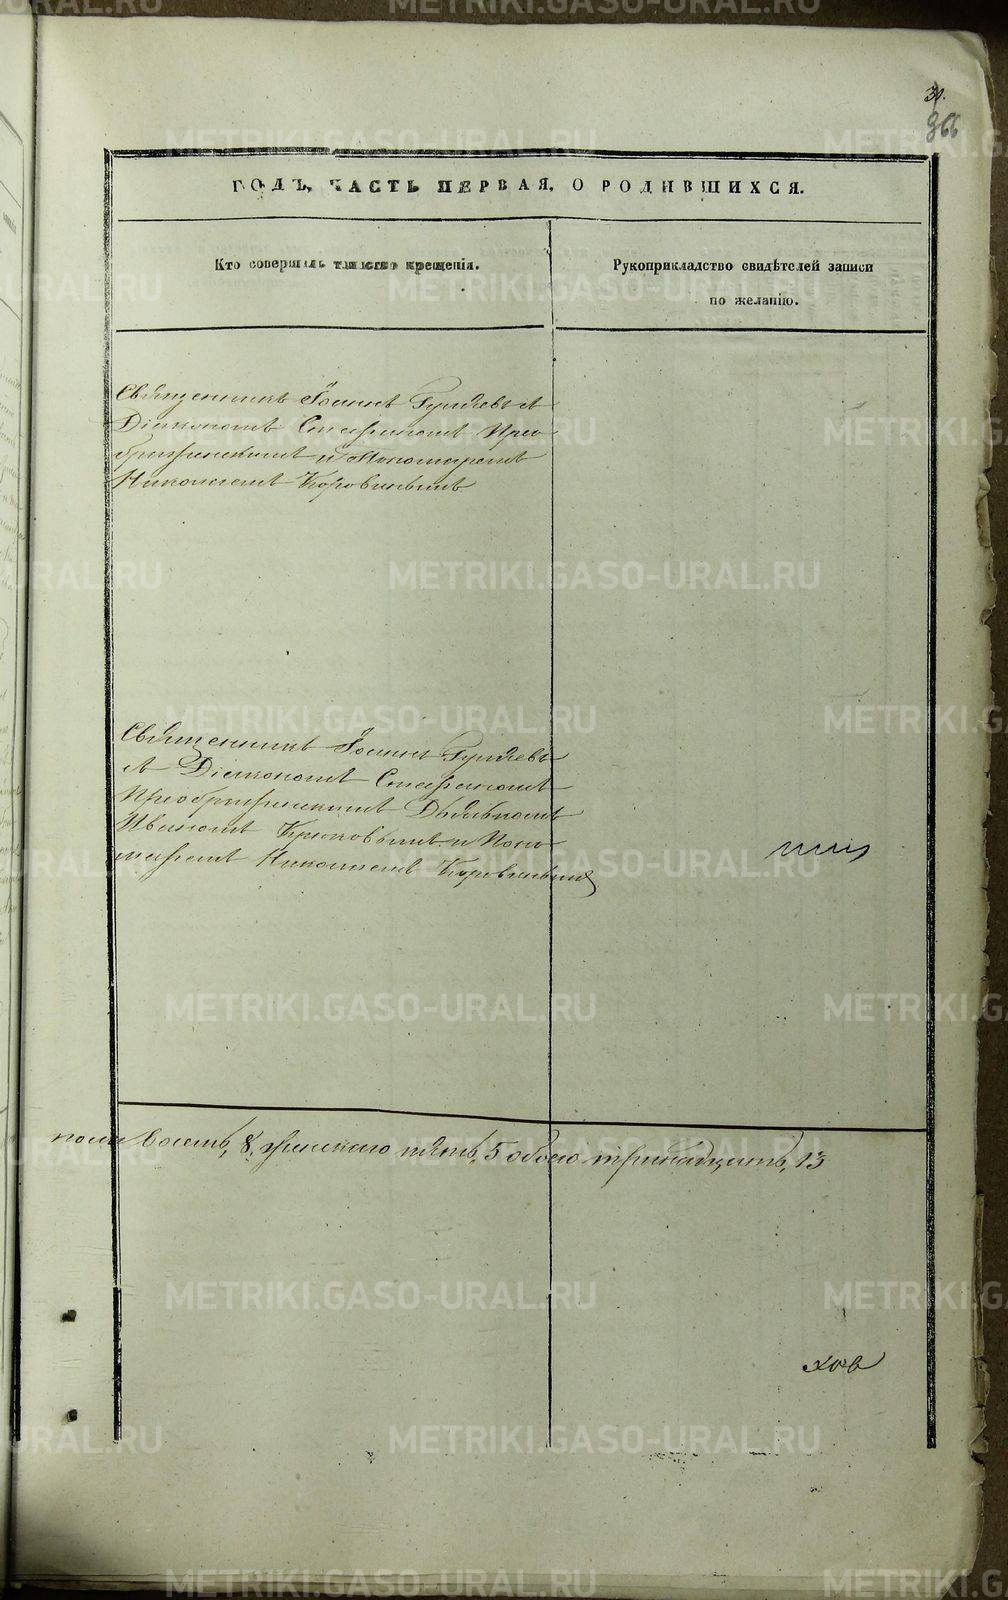 31.
366
ГОДЪ, ЧАСТЬ ПЕРВАЯ, О РОДИВШИХСЯ.
Кто совершалъ таинство крещенія.
Рукоприкладство свидѣтелей записи
по желанію.
Священникъ Іоаннъ Гуляевъ съ
Діакономъ Стефаномъ Прео-
браженскимъ и Пономаремъ
Николаемъ Коровинымъ
Священникъ Іоаннъ Гуляевъ
съ Діакономъ Стефаномъ
Преображенскимъ Дьячкомъ
Иваномъ и Поно-
маремъ Николаемъ Коровинымъ
пола восемь, 8, женскаго пять, 5 обоего тринадцать, 13
METRIKI.GASO-URAL.RU